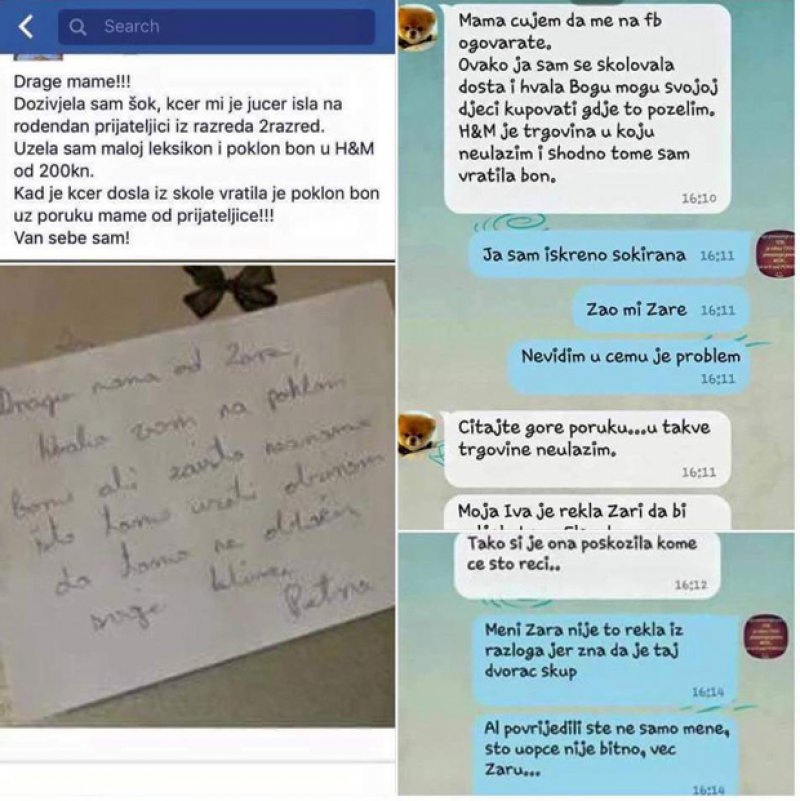 Search
Drage mame!!!
Dozivjela sam šok, kcer mi je jucer isla na
rodendan prijateljici iz razreda 2razred.
Uzela sam maloj leksikon i poklon bon u H&M
od 200kn.
Kad je kcer dosla iz skole vratila je poklon bon
uz poruku mame od prijateljice!!!
Van sebe sam!
Draga mama od Zare,
hvala vam na poklon
bonu ali zaista
tamo uzeti
da tamo ne odlazim
Petra
Mama cujem da me na fb
ogovarate.
Ovako ja sam se skolovala
dosta i hvala Bogu mogu svojoj
djeci kupovati gdje to pozelim.
H&M je trgovina u koju
neulazim i shodno tome sam
vratila bon.
16:10
Ja sam iskreno sokirana 16:11
Zao mi Zare 16:11
Nevidim u cemu je problem
16:11
Citajte gore poruku...u takve
trgovine neulazim.
16:11
Moja Iva je rekla Zari da bi
Tako si je ona poskozila kome
ce sto reci..
16:12
Meni Zara nije to rekla iz
razloga jer zna da je taj
dvorac skup
16:14
Al povrijedili ste ne samo mene,
sto uopce nije bitno, vec
Zaru...
16:14